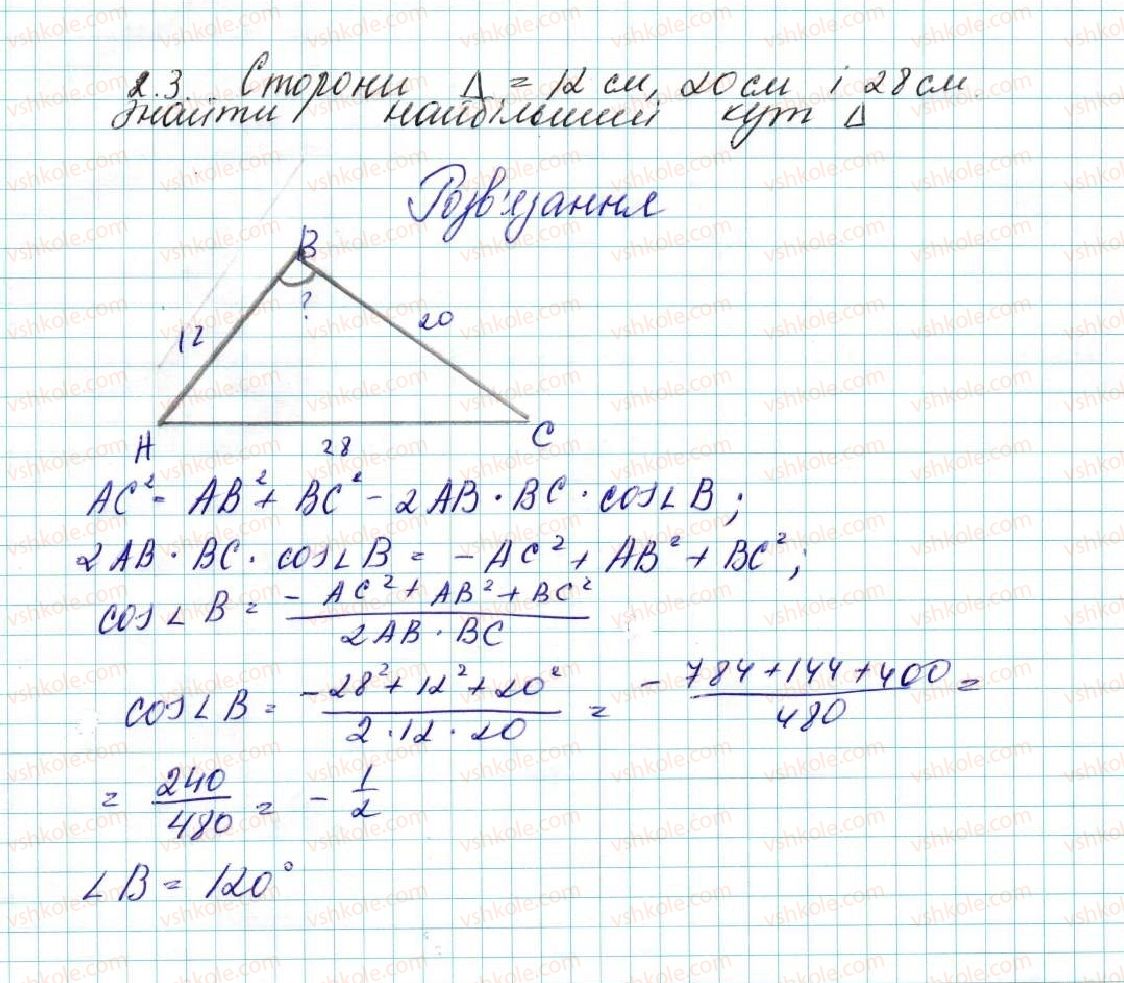 2.3. Сторони Δ = 12 см, 20 см і 28 см.
знайти найбільший кут Δ
Розв'язання
B
?
12
20
A
28
C
AC² = AB² + BC² - 2AB · BC · cos∠B;
2AB · BC · cos∠B = - AC² + AB² + BC²;
cos∠B = (- AC² + AB² + BC²) / (2AB · BC)
cos∠B = (-28² + 12² + 20²) / (2 · 12 · 20) = - (784 + 144 + 400) / 480 =
= 240/480 = - 1/2
∠B = 120°
vshkole.com